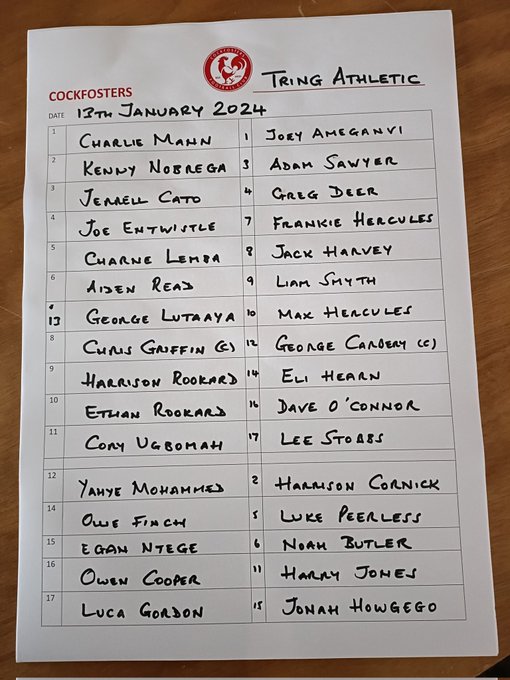 COCKFOSTERS
FOOTBALL CLUB
COCKFOSTERS TRING ATHLETIC
DATE 13TH JANUARY 2024
1 CHARLIE MANN 1 JOEY AMEGANVI
2 KENNY NOBREGA 3 ADAM SAWYER
3 JERRELL CATO 4 GREG DEER
4 JOE ENTWISTLE 7 FRANKIE HERCULES
5 CHARNE LEMBA 8 JACK HARVEY
6 AIDEN READ 9 LIAM SMYTH
13 GEORGE LUTAAYA 10 MAX HERCULES
8 CHRIS GRIFFIN (C) 12 GEORGE CARBERY (C)
9 HARRISON ROOKARD 14 ELI HEARN
10 ETHAN ROOKARD 16 DAVE O'CONNOR
11 CORY UGBOMAH 17 LEE STOBBS
12 YAHYE MOHAMMED 2 HARRISON CORNICK
14 OLLIE FINCH 5 LUKE PEERLESS
15 EGAN NTEGE 6 NOAH BUTLER
16 OWEN COOPER 11 HARRY JONES
17 LUCA GORDON 15 JONAH HOWGEGO